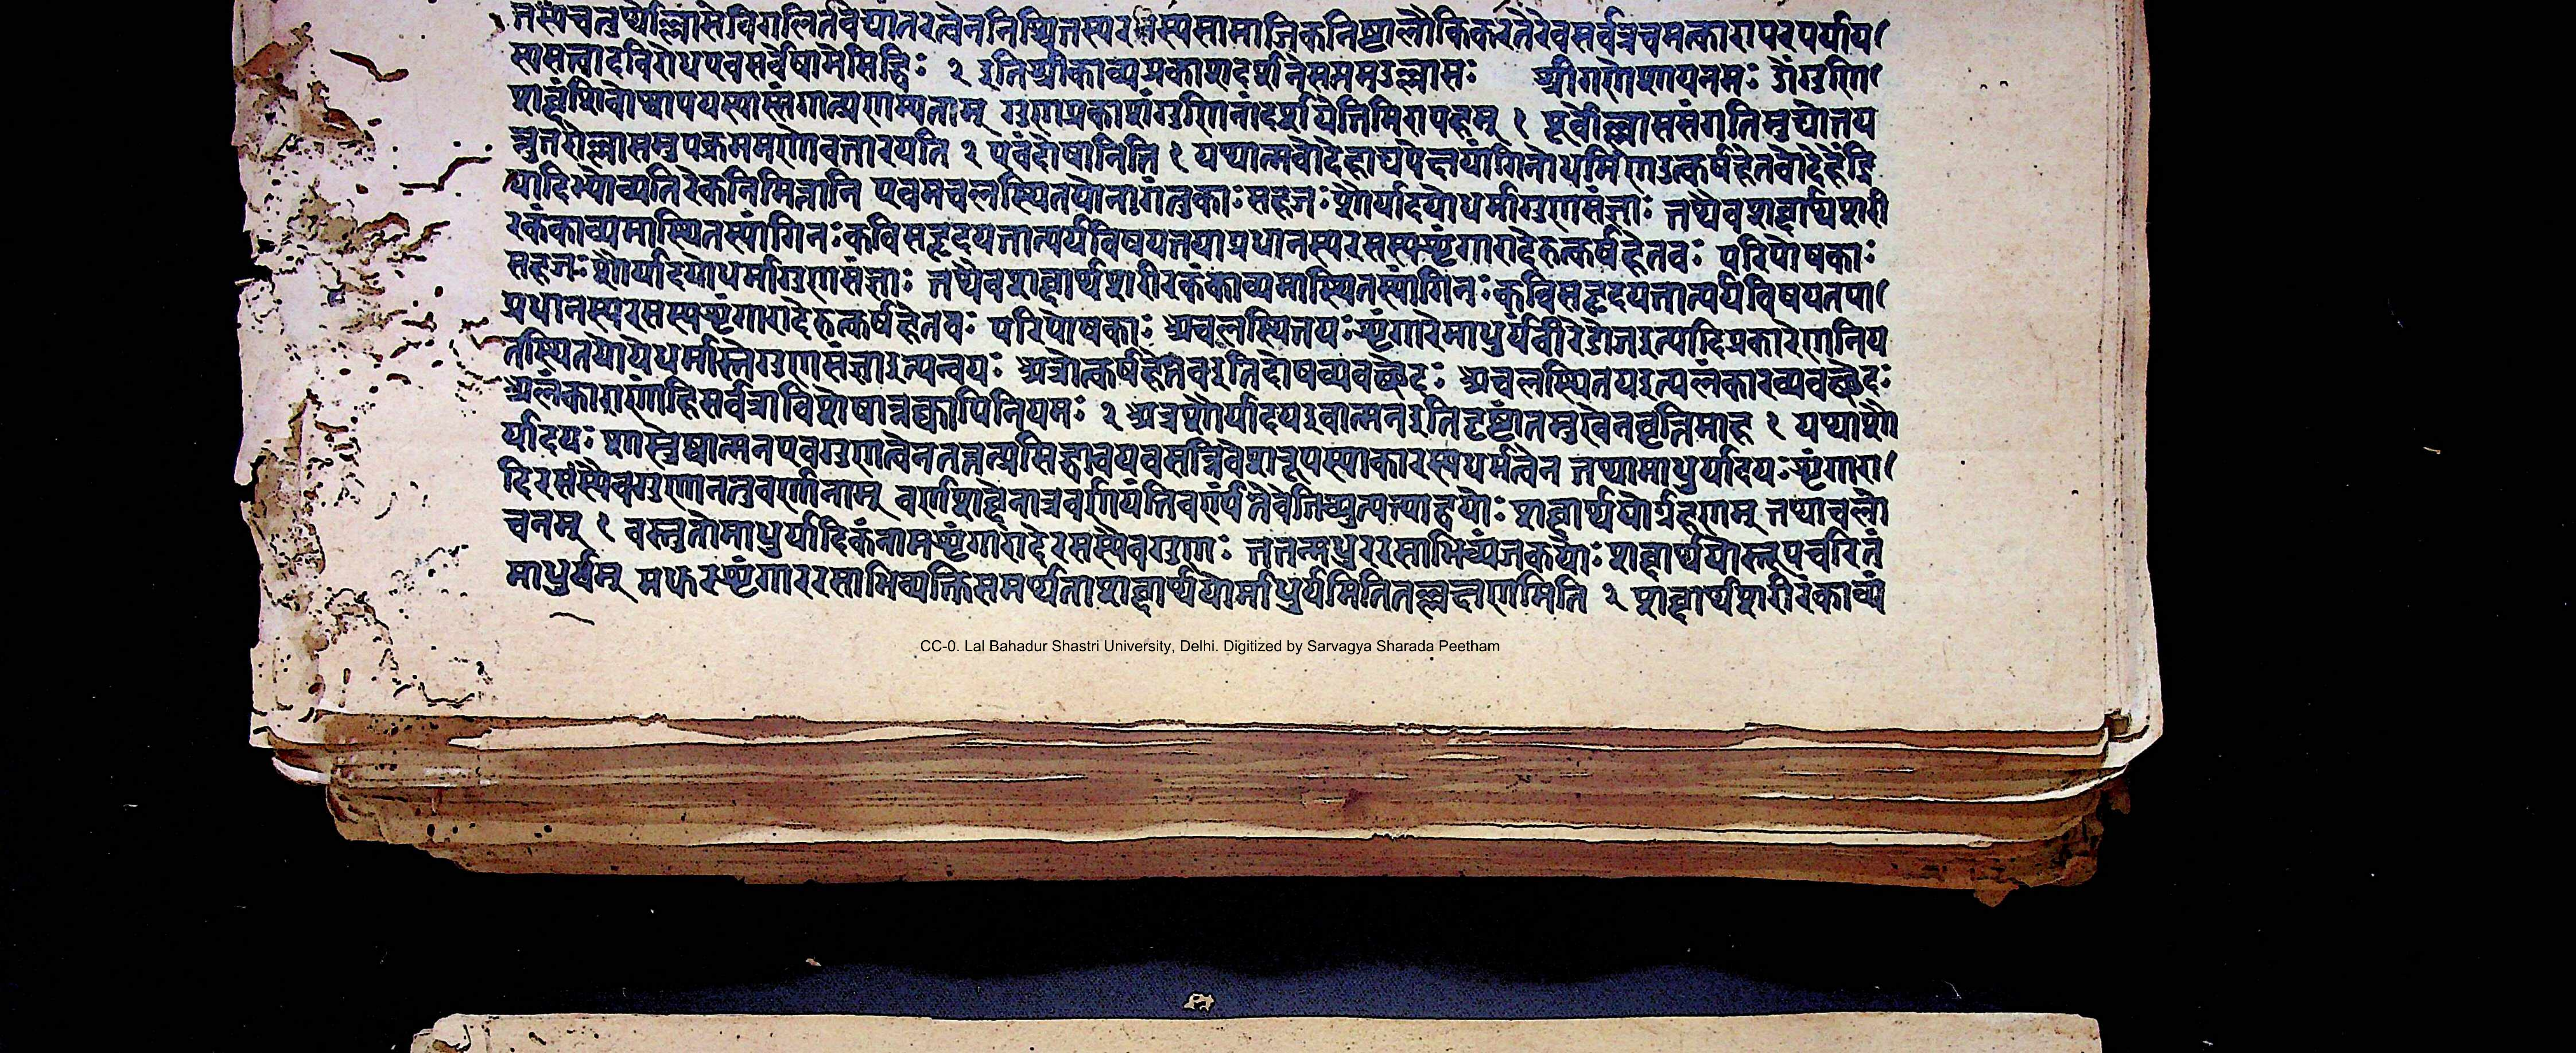 तस्यचतुर्थोल्लासेविगलितवेद्यांतरत्वेननिश्चितस्यरसस्यसामाजिकनिष्टालौकिकरतेरेवसर्वत्रचमत्कारापरपर्याय
सासत्त्वादविरोधएवसर्वेषामेसिद्धिः २ इतिश्रीकाव्यप्रकाशदर्शनेसप्तमउल्लासः श्रीगणेशायनमः उोंगुणि
गुणप्रकाशंगुणिनांदर्शयेत्तिमिरापहम् १ पूर्वोल्लाससंगतिमुद्योतय
न्नुत्तरोल्लासमुपक्रममाणोवतारयति २ एवंदोषानिति १ यथात्मवोदेहाद्यपेक्षयांगिनोधर्मिणउत्कर्षहेतवोदेहेंद्रि
यादिभ्योव्यतिरेकनिमित्तानि एवमचलस्थितयोनागंतुकाः सहजाः शौर्यादयोधर्मागुणसंज्ञाः तथैवशब्दार्थशरी
रकंकाव्यमास्थितस्यांगिनः कविसहृदयतात्पर्यविषयतयाप्रधानस्यरसस्यशृंगारादेरुत्कर्षहेतवः परिपोषकाः
सहजाः शौर्यादयोधर्मागुणसंज्ञाः तथैवशब्दार्थशरीरकंकाव्यमास्थितस्यांगिनः कविसहृदयतात्पर्यविषयतया
प्रधानस्यरसस्यशृंगारादेरुत्कर्षहेतवः परिपोषकाः अचलस्थितयः शृंगारेमाधुर्यंवीरेउोजइत्यादिप्रकारेणनिय
तस्थितयोयेधर्मास्तेगुणसंज्ञाइत्यन्वयः अत्रोत्कर्षहेतवइतिदोषव्यवच्छेदः अचलस्थितयइत्यलंकारव्यवच्छेदः
अलंकाराणांहिसर्वत्राविशेषान्नक्वापिनियमः २ अत्रशौर्यादयइवात्मनइतिदृष्टांतमुखेनवृत्तिमाह १ यथाशौ
र्यादयः शास्त्रेष्वात्मनएवगुणात्वेनतत्तत्प्रसिद्धावयवसन्निवेशरूपस्याकारस्यधर्मत्वेन तथामाधुर्यादयः शृंगारा
दिरसस्यैवगुणानतुवर्णानाम् वर्णशब्देनात्रवर्णयंतिवर्ण्यंतेवेतिव्युत्पत्त्याद्वयोः शब्दार्थयोर्ग्रहणम् तथाचलो
चनम् १ वस्तुतोमाधुर्यादिकंनामशृंगारादेरसस्यैवगुणः तत्तन्मधुररसाभिव्यंजकयोः शब्दार्थयोस्तूपचरितं
माधुर्यम् मधुरशृंगाररसाभिव्यक्तिसमर्थताशब्दार्थयोर्माधुर्यमितितल्लक्षणमिति २ शब्दार्थशरीरंकाव्यं
CC-0. Lal Bahadur Shastri University, Delhi. Digitized by Sarvagya Sharada Peetham